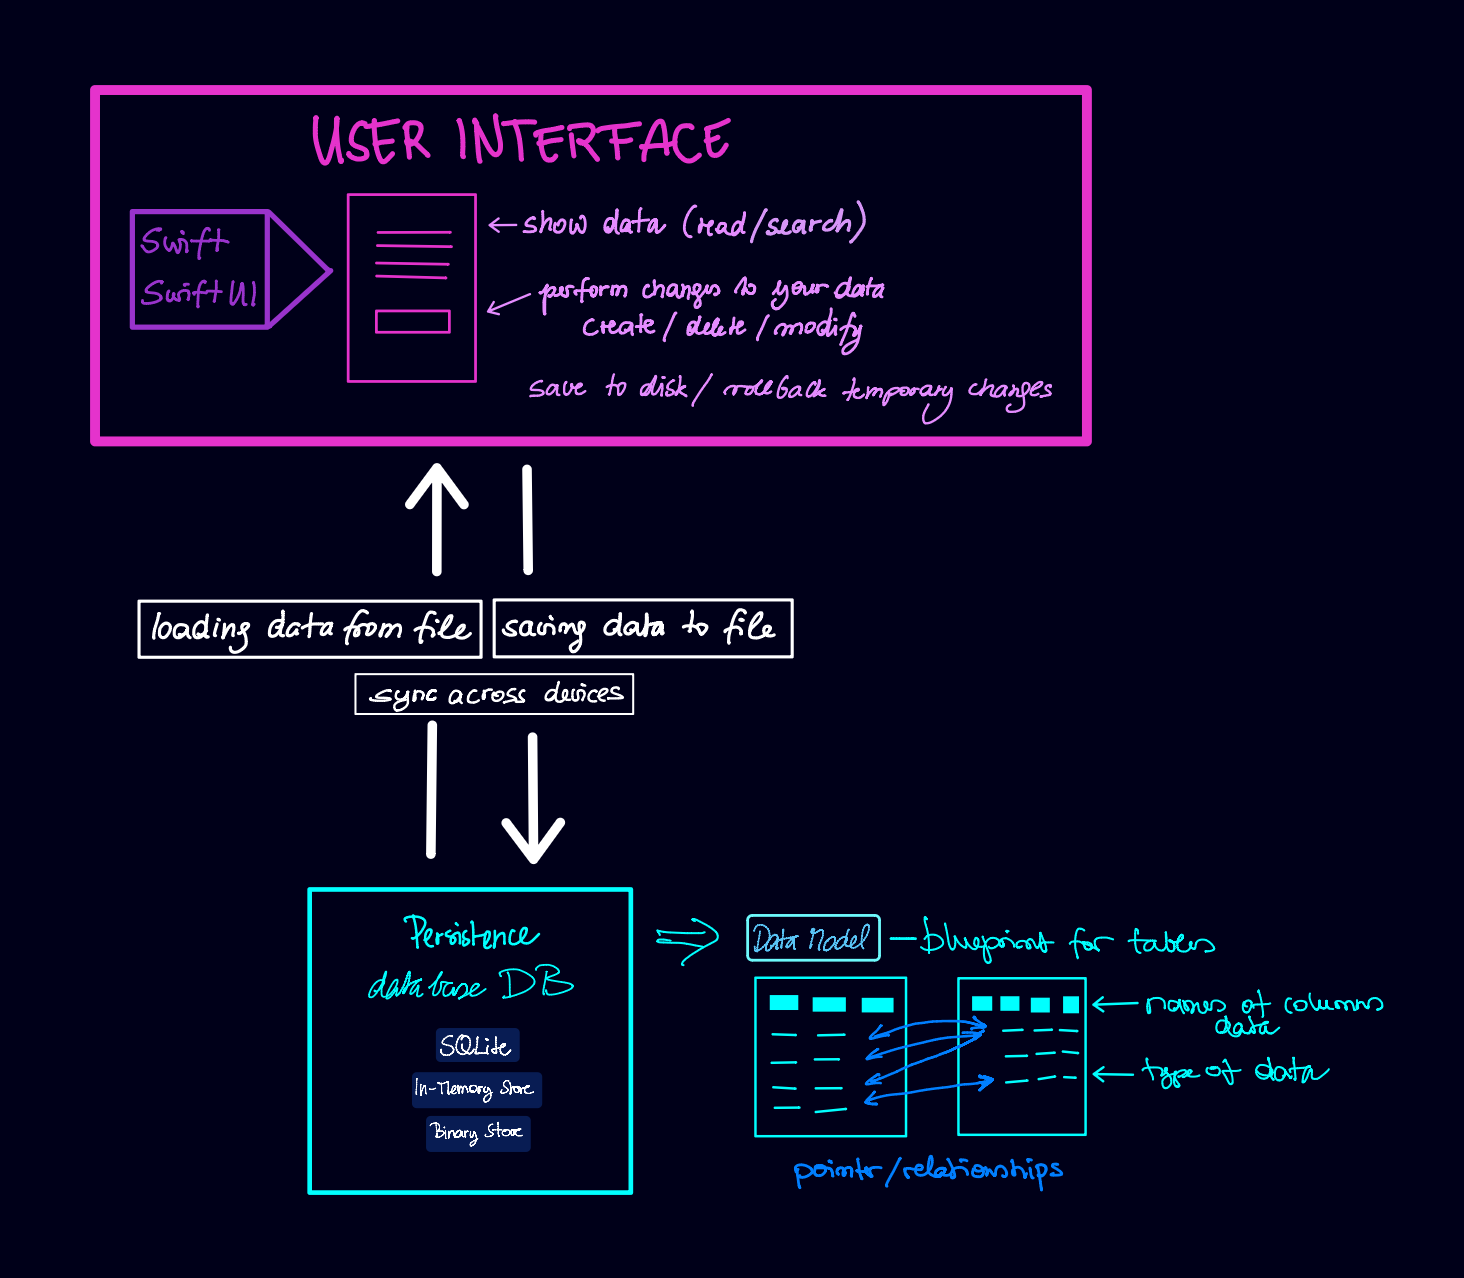 USER INTERFACE
Swift
Swift UI
show data (read/search)
perform changes to your data
create / delete / modify
save to disk / rollback temporary changes
loading data from file
saving data to file
sync across devices
Persistence
database DB
SQLite
In-Memory Store
Binary Store
Data Model
blueprint for tables
names of columns
data
type of data
pointer/relationships